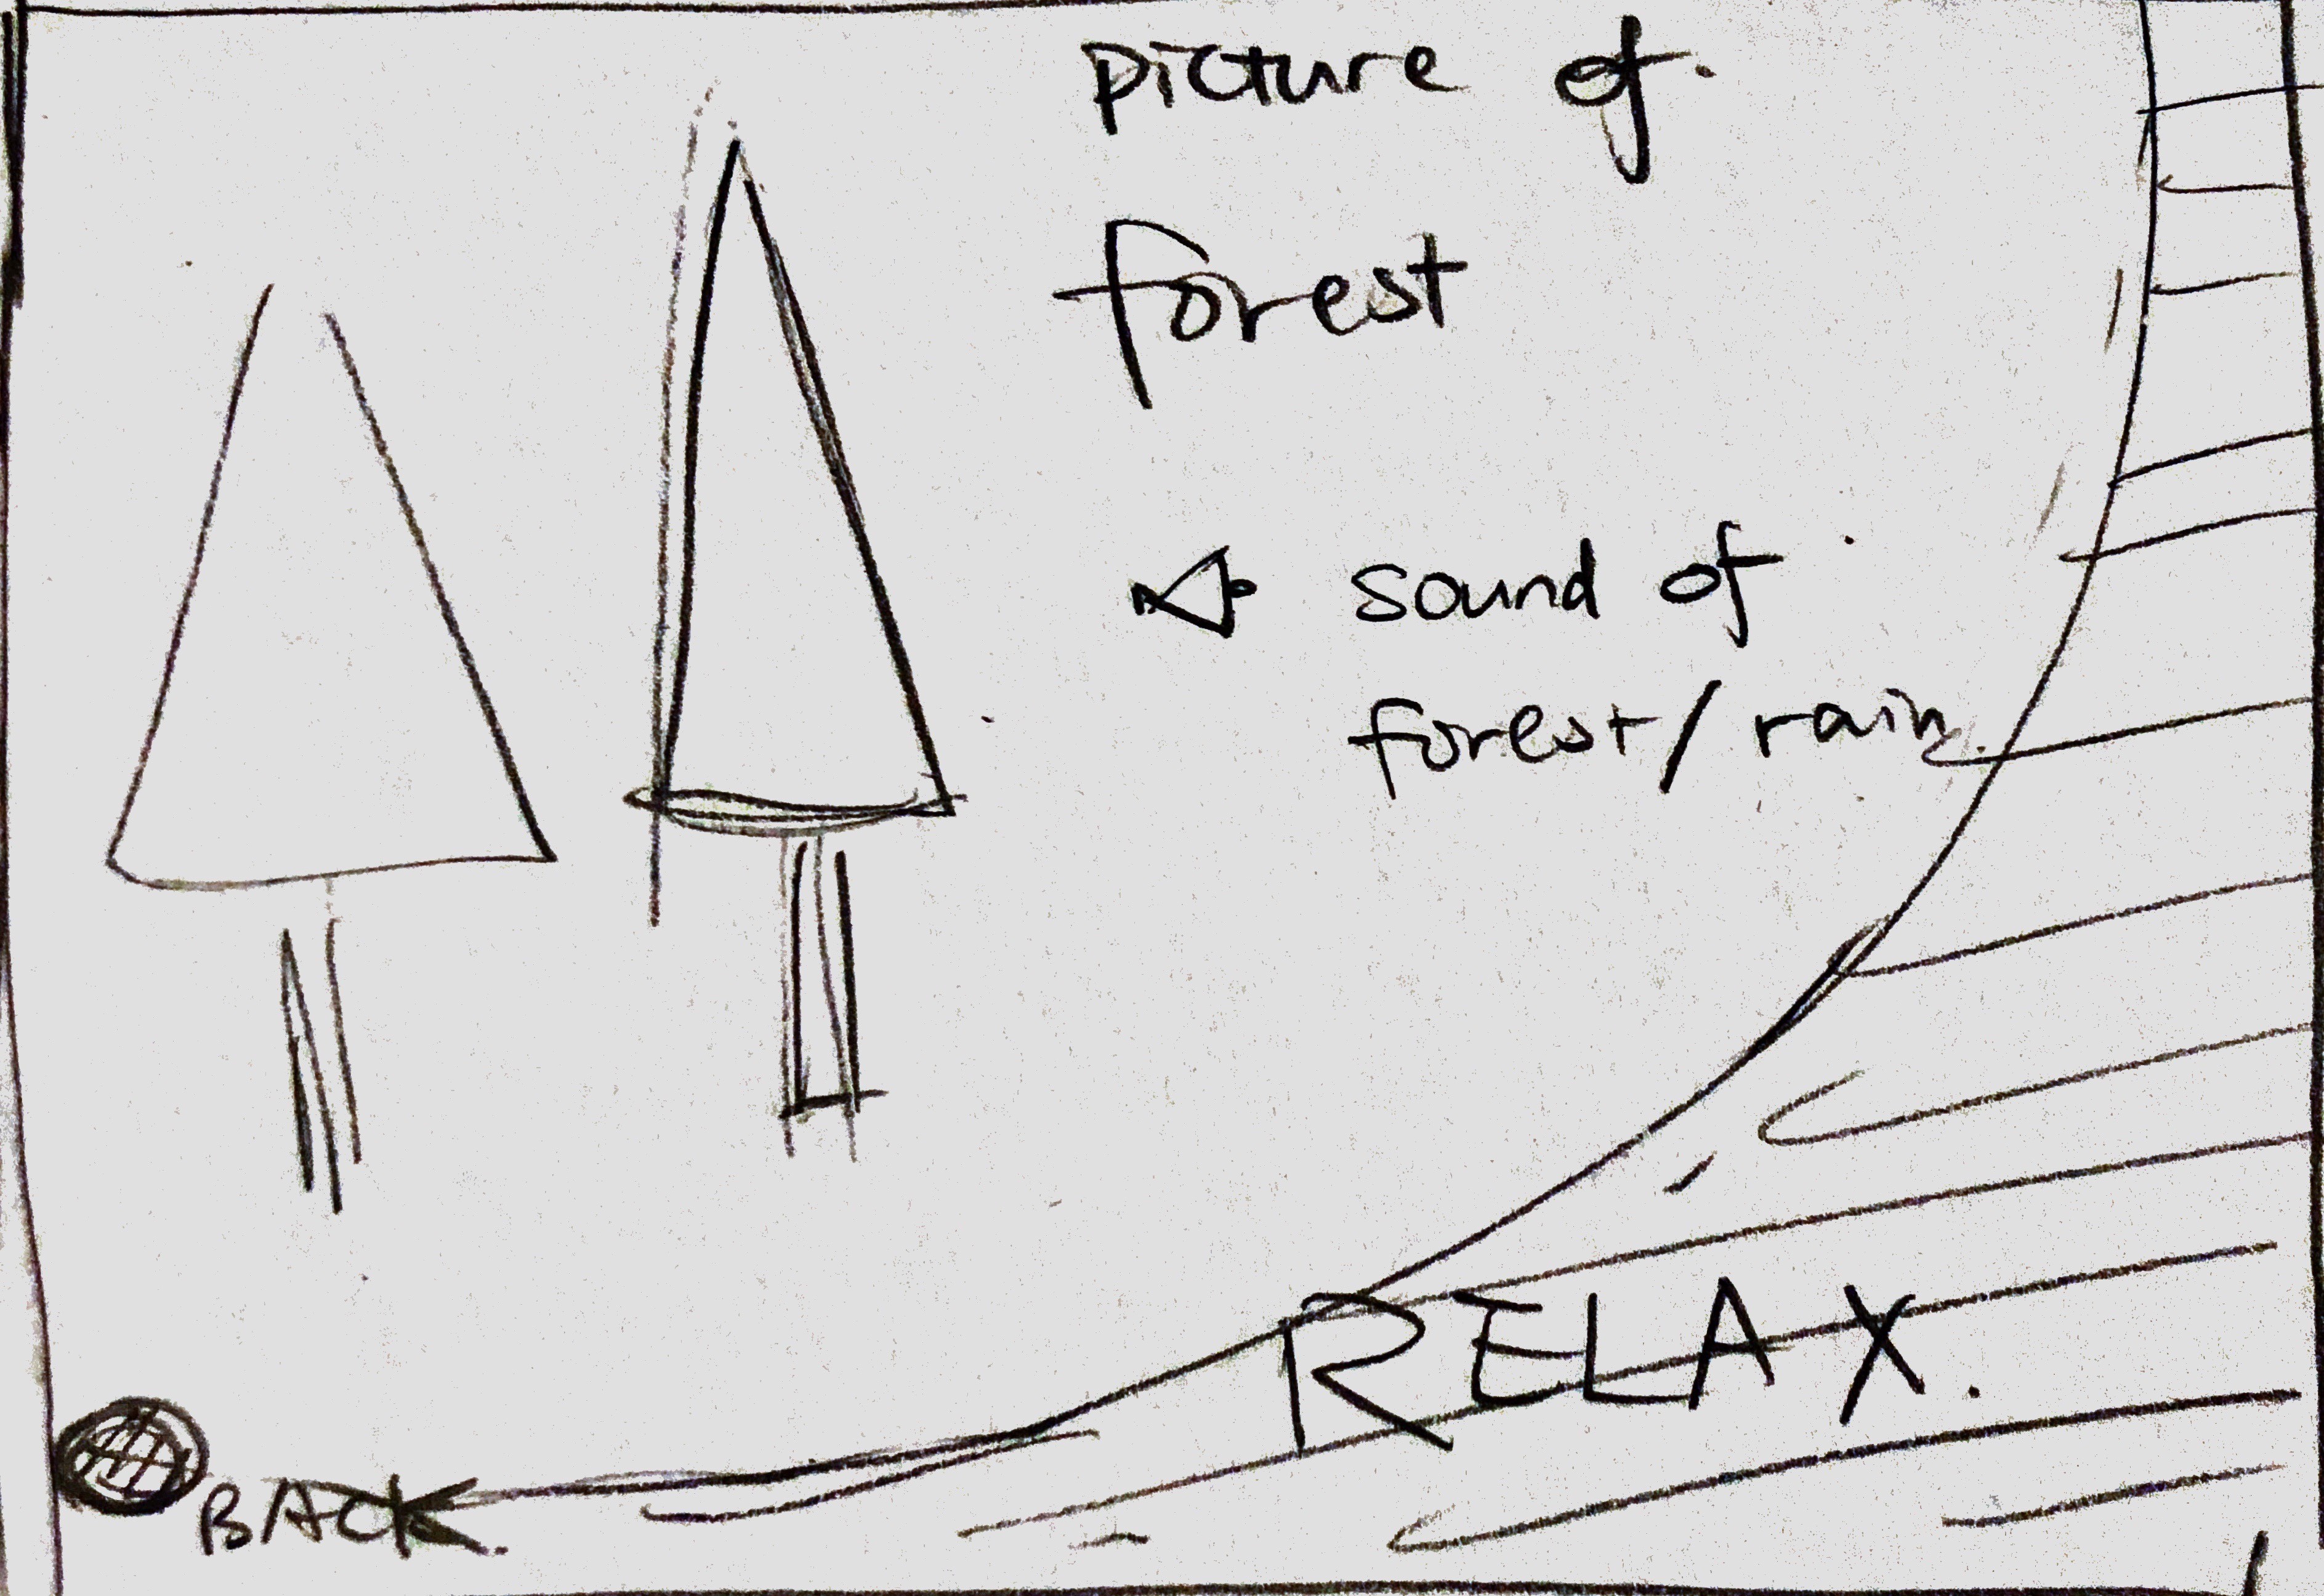 picture of
forest
sound of
forest/rain.
RELAX.
BACK.